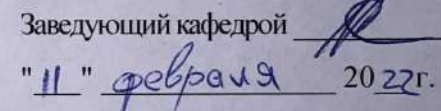 Заведующий кафедрой
"11" февраля 2022г.